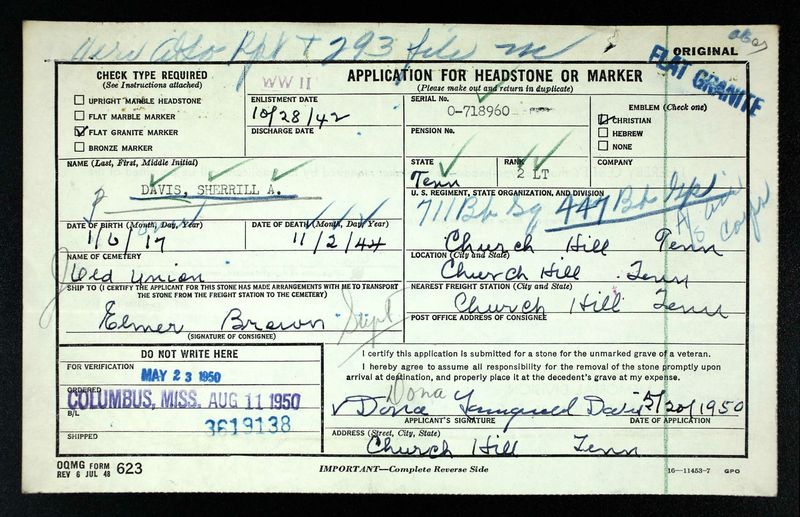 Vers Also Rpt + 293 file m
ORIGINAL
FLAT GRANITE
CHECK TYPE REQUIRED
(See Instructions attached)
UPRIGHT MARBLE HEADSTONE
FLAT MARBLE MARKER
FLAT GRANITE MARKER
BRONZE MARKER
WW II
ENLISTMENT DATE
10/28/42
DISCHARGE DATE
APPLICATION FOR HEADSTONE OR MARKER
(Please make out and return in duplicate)
SERIAL No.
O-718960
PENSION No.
EMBLEM (Check one)
CHRISTIAN
HEBREW
NONE
NAME (Last, First, Middle Initial)
DAVIS, SHERRILL A.
STATE
Tenn
RANK
2 LT
COMPANY
U. S. REGIMENT, STATE ORGANIZATION, AND DIVISION
711 Bb Sq 447 Bb Gp
A/S Air Corps
DATE OF BIRTH (Month, Day, Year)
1/6/17
DATE OF DEATH (Month, Day, Year)
11/2/44
Church Hill Tenn
NAME OF CEMETERY
Old Union
LOCATION (City and State)
Church Hill Tenn
SHIP TO (I CERTIFY THE APPLICANT FOR THIS STONE HAS MADE ARRANGEMENTS WITH ME TO TRANSPORT
THE STONE FROM THE FREIGHT STATION TO THE CEMETERY)
Elmer Brown
(SIGNATURE OF CONSIGNEE)
NEAREST FREIGHT STATION (City and State)
Church Hill Tenn
POST OFFICE ADDRESS OF CONSIGNEE
DO NOT WRITE HERE
FOR VERIFICATION
MAY 23 1950
ORDERED
COLUMBUS, MISS. AUG 11 1950
B/L
3619138
SHIPPED
I certify this application is submitted for a stone for the unmarked grave of a veteran.
I hereby agree to assume all responsibility for the removal of the stone promptly upon
arrival at destination, and properly place it at the decedent's grave at my expense.
Dona
Dona Davis 5/20/1950
APPLICANT'S SIGNATURE
DATE OF APPLICATION
ADDRESS (Street, City, State)
Church Hill Tenn
OQMG FORM 623
REV 6 JUL 48
IMPORTANT—Complete Reverse Side
16—11453-7 GPO